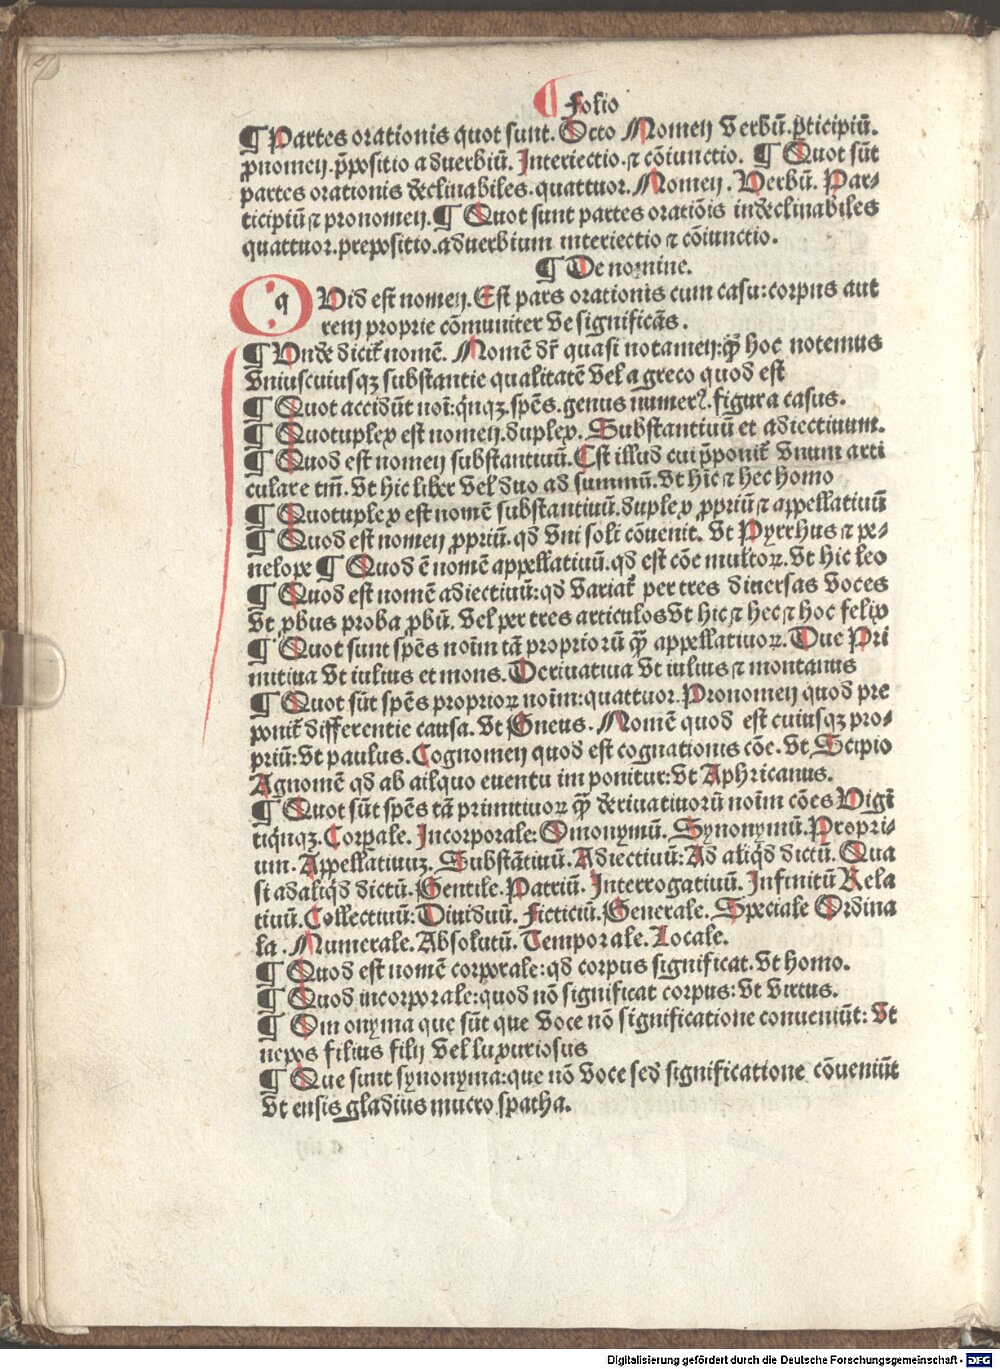 ¶ Folio
¶ Partes orationis quot sunt. Octo Nomen Verbū. p̄ticipiū.
ꝓnomen. p̄positio aduerbiū. Interiectio. ⁊ cōiunctio. ¶ Quot sūt
partes orationis declinabiles. quattuor. Nomen. Verbū. Par⸗
ticipiū ⁊ pronomen. ¶ Quot sunt partes oratiōis indeclinabiles
quattuor. prepositio. aduerbium interiectio ⁊ cōiunctio.
¶ De nomine.
q Vid est nomen. Est pars orationis cum casu: corpus aut
rem proprie cōmuniter ve significās.
¶ Vnde dicit̄ nomē. Nomē dr̄ quasi notamen: ꝙ hoc notemus
vniuscuiusqꝫ substantie qualitatē vel a greco quod est
¶ Quot accidūt noī: qīnqꝫ. spēs. genus numerꝰ. figura casus.
¶ Quotuplex est nomen. duplex. Substantiuū et adiectiuum.
¶ Quod est nomen substantiuū. Est illud cui p̄ponit̄ vnum arti
culare tm̄. vt hic liber vel duo ad summū. vt hic ⁊ hec homo
¶ Quotuplex est nomē substantiuū. duplex ꝓpriū ⁊ appellatiuū
¶ Quod est nomen ꝓpriū. qd vni soli cōuenit. vt Pyrrhus ⁊ pe⸗
nelope ¶ Quod ē nomē appellatiuū. qd est cōe multoꝝ. vt hic leo
¶ Quod est nomē adiectiuū: qd variat̄ per tres diuersas voces
vt ꝓbus proba ꝓbū. vel per tres articulos vt hic ⁊ hec ⁊ hoc felix
¶ Quot sunt spēs noīm tā propriorū ꝙ̄ appellatiuoꝝ. Due Pri
mitiua vt iulus et mons. Deriuatiua vt iulius ⁊ montanus
¶ Quot sūt spēs proprioꝝ noīm: quattuor. Pronomen quod pre
ponit̄ differentie causa. vt Gneus. Nomē quod est cuiusqꝫ pro⸗
priū: vt paulus. Cognomen quod est cognationis cōe. vt Scipio
Agnomē qd ab ailquo euentu im ponitur: vt Aphricanus.
¶ Quot sūt spēs tā primitiuoꝝ ꝙ̄ deriuatiuorū noīm cōes Vigī
tiqīnqꝫ. Corpale. Incorporale: Omonymū. Synonymū. Propri⸗
um. Appellatiuuꝫ. Substātiuū. Adiectiuū: Ad aliqd dictū. Qua
si adaliqd dictū. Gentile. Patriū. Interrogatiuū. Infinitū Rela
tiuū. Collectiuū: Diuiduū. Ficticiū. Generale. Speciale Ordina
la. Numerale. Absolutū. Temporale. Locale.
¶ Quod est nomē corporale: qd corpus significat. vt homo.
¶ Quod incorporale: quod nō significat corpus: vt virtus.
¶ Om onyma que sūt que voce nō significatione conueniūt: vt
nepos filius filij vel luxuriosus
¶ Que sunt synonyma: que nō voce sed significatione cōueniūt
vt ensis gladius mucro spatha.
Digitalisierung gefördert durch die Deutsche Forschungsgemeinschaft - DFG